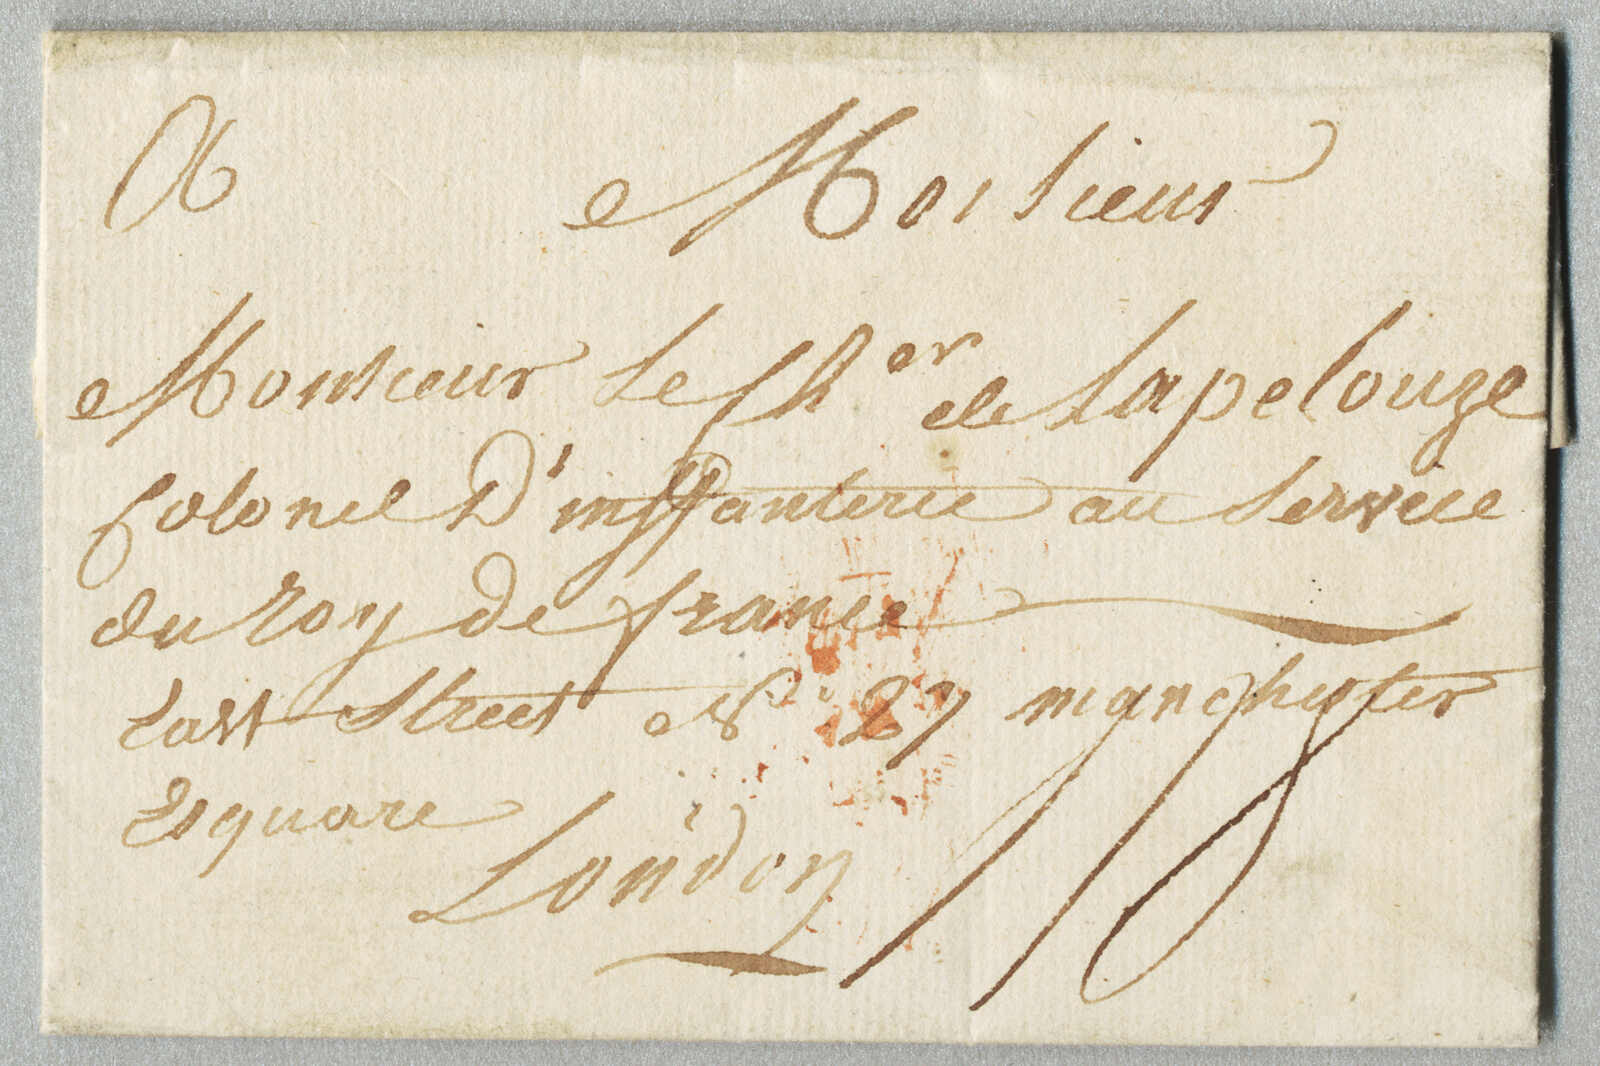 A Monsieur
Monsieur Le Ch^er de Lapelouze
Colonel D'inffanterie au Service
du Roy de france
East Street N° 27 manchester
Esquare
London